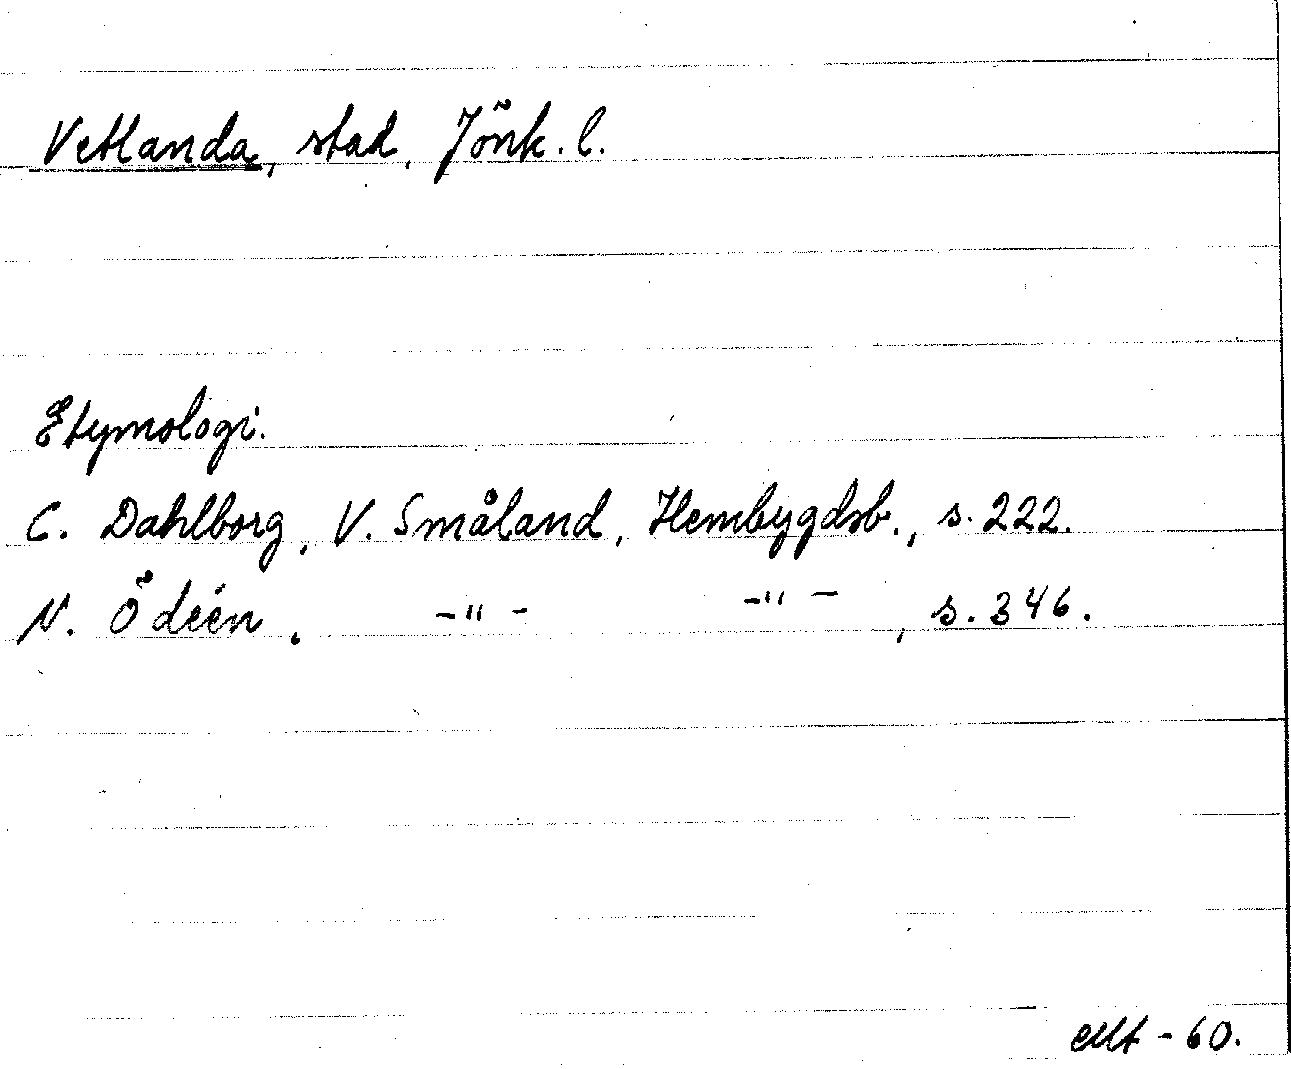 Vetlanda, stad, Jönk. l.
Etymologi.
C. Dahlborg, V. Småland, Hembygdsb., s. 222.
N. Ödéen, -"- -"-, s. 346.
-60.